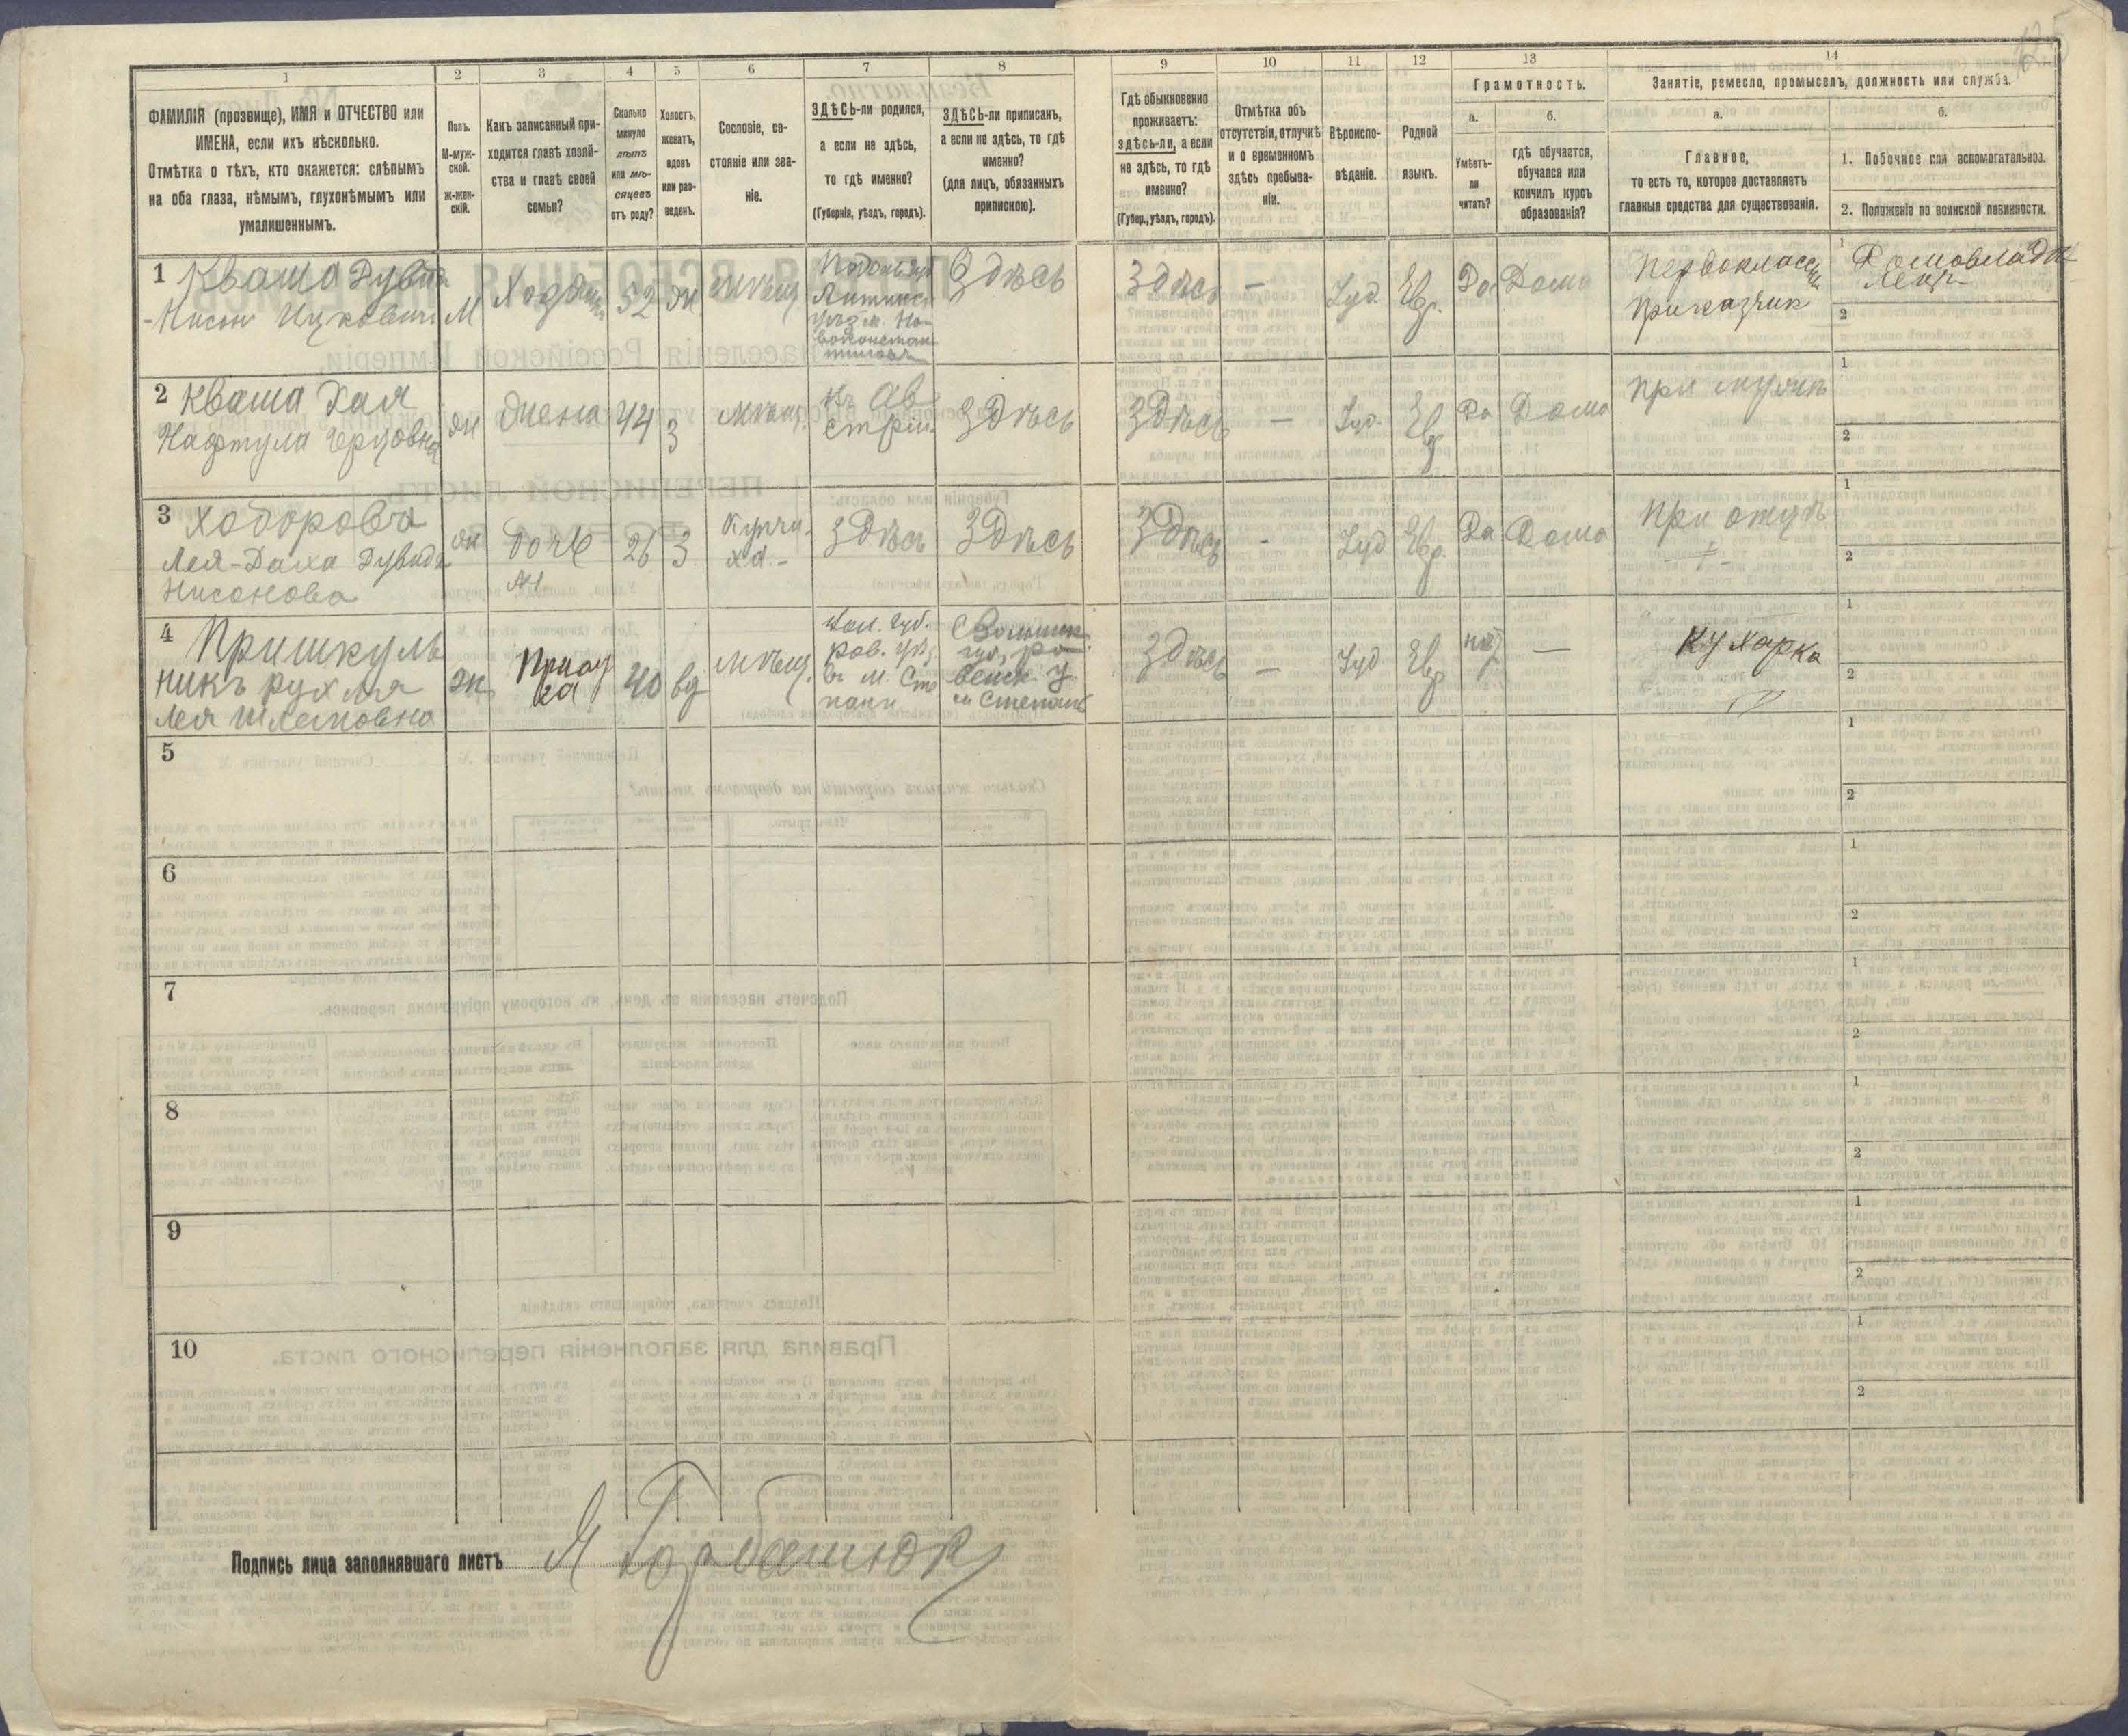 1
2
3
4
5
6
7
8
9
10
11
12
13
14
ФАМИЛІЯ (прозвище), ИМЯ и ОТЧЕСТВО или
ИМЕНА, если ихъ нѣсколько.
Отмѣтка о тѣхъ, кто окажется: слѣпымъ
на оба глаза, нѣмымъ, глухонѣмымъ или
умалишеннымъ.
Полъ.
М-муж-
ской.
ж-жен-
скій.
Какъ записанный при-
ходится главѣ хозяй-
ства и главѣ своей
семьи?
Сколько
минуло
лѣтъ
или мѣ-
сяцевъ
отъ роду?
Холостъ,
женатъ,
вдовъ
или раз-
веденъ.
Сословіе, со-
стояніе или зва-
ніе.
ЗДѢСЬ-ли родился,
а если не здѣсь,
то гдѣ именно?
(Губернія, уѣздъ, городъ).
ЗДѢСЬ-ли приписанъ,
а если не здѣсь, то гдѣ
именно?
(для лицъ, обязанныхъ
припискою).
Гдѣ обыкновенно
проживаетъ:
здѣсь-ли, а если
не здѣсь, то гдѣ
именно?
(Губер., уѣздъ, городъ).
Отмѣтка объ
отсутствіи, отлучкѣ
и о временномъ
здѣсь пребыва-
ніи.
Вѣроиспо-
вѣданіе.
Родной
языкъ.
Грамотность.
а.
Умѣетъ-
ли
читать?
б.
гдѣ обучается,
обучался или
кончилъ курсъ
образованія?
Занятіе, ремесло, промыселъ, должность или служба.
а.
Главное,
то есть то, которое доставляетъ
главныя средства для существованія.
б.
1. Побочное или вспомогательное.
2. Положеніе по воинской повинности.
1 Кваша Дувид
-Нисон Ицкович
М
Хозяин
52
ж
мѣщ
Подольск
Литинс
уѣз. м. Но-
воконстан-
тинов
Здѣсь
Здѣсь
-
Іуд.
Евр.
Да
Дома
Первоклассн
приказчик
1 Домовладѣ
лецъ
2
2 Кваша Хая
Нафтула Герцовна
ж
жена
44
З
мѣщ.
въ Ав
стріи
Здѣсь
Здѣсь
-
Іуд.
Евр
Да
Дома
при мужѣ
1
2
3 Ходоровъ
Лея-Даха Дувидъ
Нисонова
ж
дочь
26
З
купчи-
ха.-
Здѣсь
Здѣсь
Здѣсь
-
Іуд
Евр.
Да
Дома
при отцѣ
1
2
4 Пришкуль
никъ рухля
Лея Шлемовна
ж
Прислу
га
40
вд
мѣщ.
Вол. губ.
ров. уѣз
въ м. Сте
пани
Волынск.
губ, ро-
венск. у.
м Степань
Здѣсь
-
Іуд
Евр
нѣт
—
кухарка
1
2
5
1
2
6
1
2
7
1
2
8
1
2
9
1
2
10
1
2
Подпись лица заполнявшаго листъ